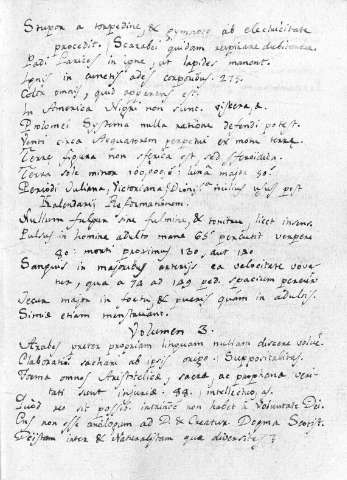 Stupor a torpedine, & gymnoto ab electricitate
procedit. Scarabei quidam
Padi Lapides in igne, ut lapides manent.
Ignis in cunctis adest corporibus. 275.
Color omnis, quid apparens est.
In America Nigri non sunt.
Ptolomei Systema nulla ratione defendi potest.
Venti circa Aequatorem perpetui ex motu terrae.
Terrae figura non sferica est, sed sferoidica.
Terra sole minor 100,000,0: luna major 50.
Periodi Juliana, Victoriana, Dionys. nullius usus post
Kalendarii Reformationem.
Nullum fulgur sine fulmine, & tonitru, licet
Pulsus in homine adulto mane 65 percutit vespere
80: morti proximus 130, aut 140
Sanguis in majoribus arteriis ea velocitate move-
tur, qua a 74 ad 149 ped. spacium
Jecur major in foetu, & pueris quam in adultis.
Simiae etiam menstruant.
Volumen 3.
Arabes praeter propriam linguam nullam discere
sachari ab ipsis
Forma omnis Aristotelica, sacrae ac prophanae veri-
tati sunt injuriae. 88.
Quod res sit possib. intrinsice non habet a Voluntate Dei.
Ens non esse analogum ad D. & Creatur. Dogma Scotist.
Deistam inter & Naturalistam quae diversitas?